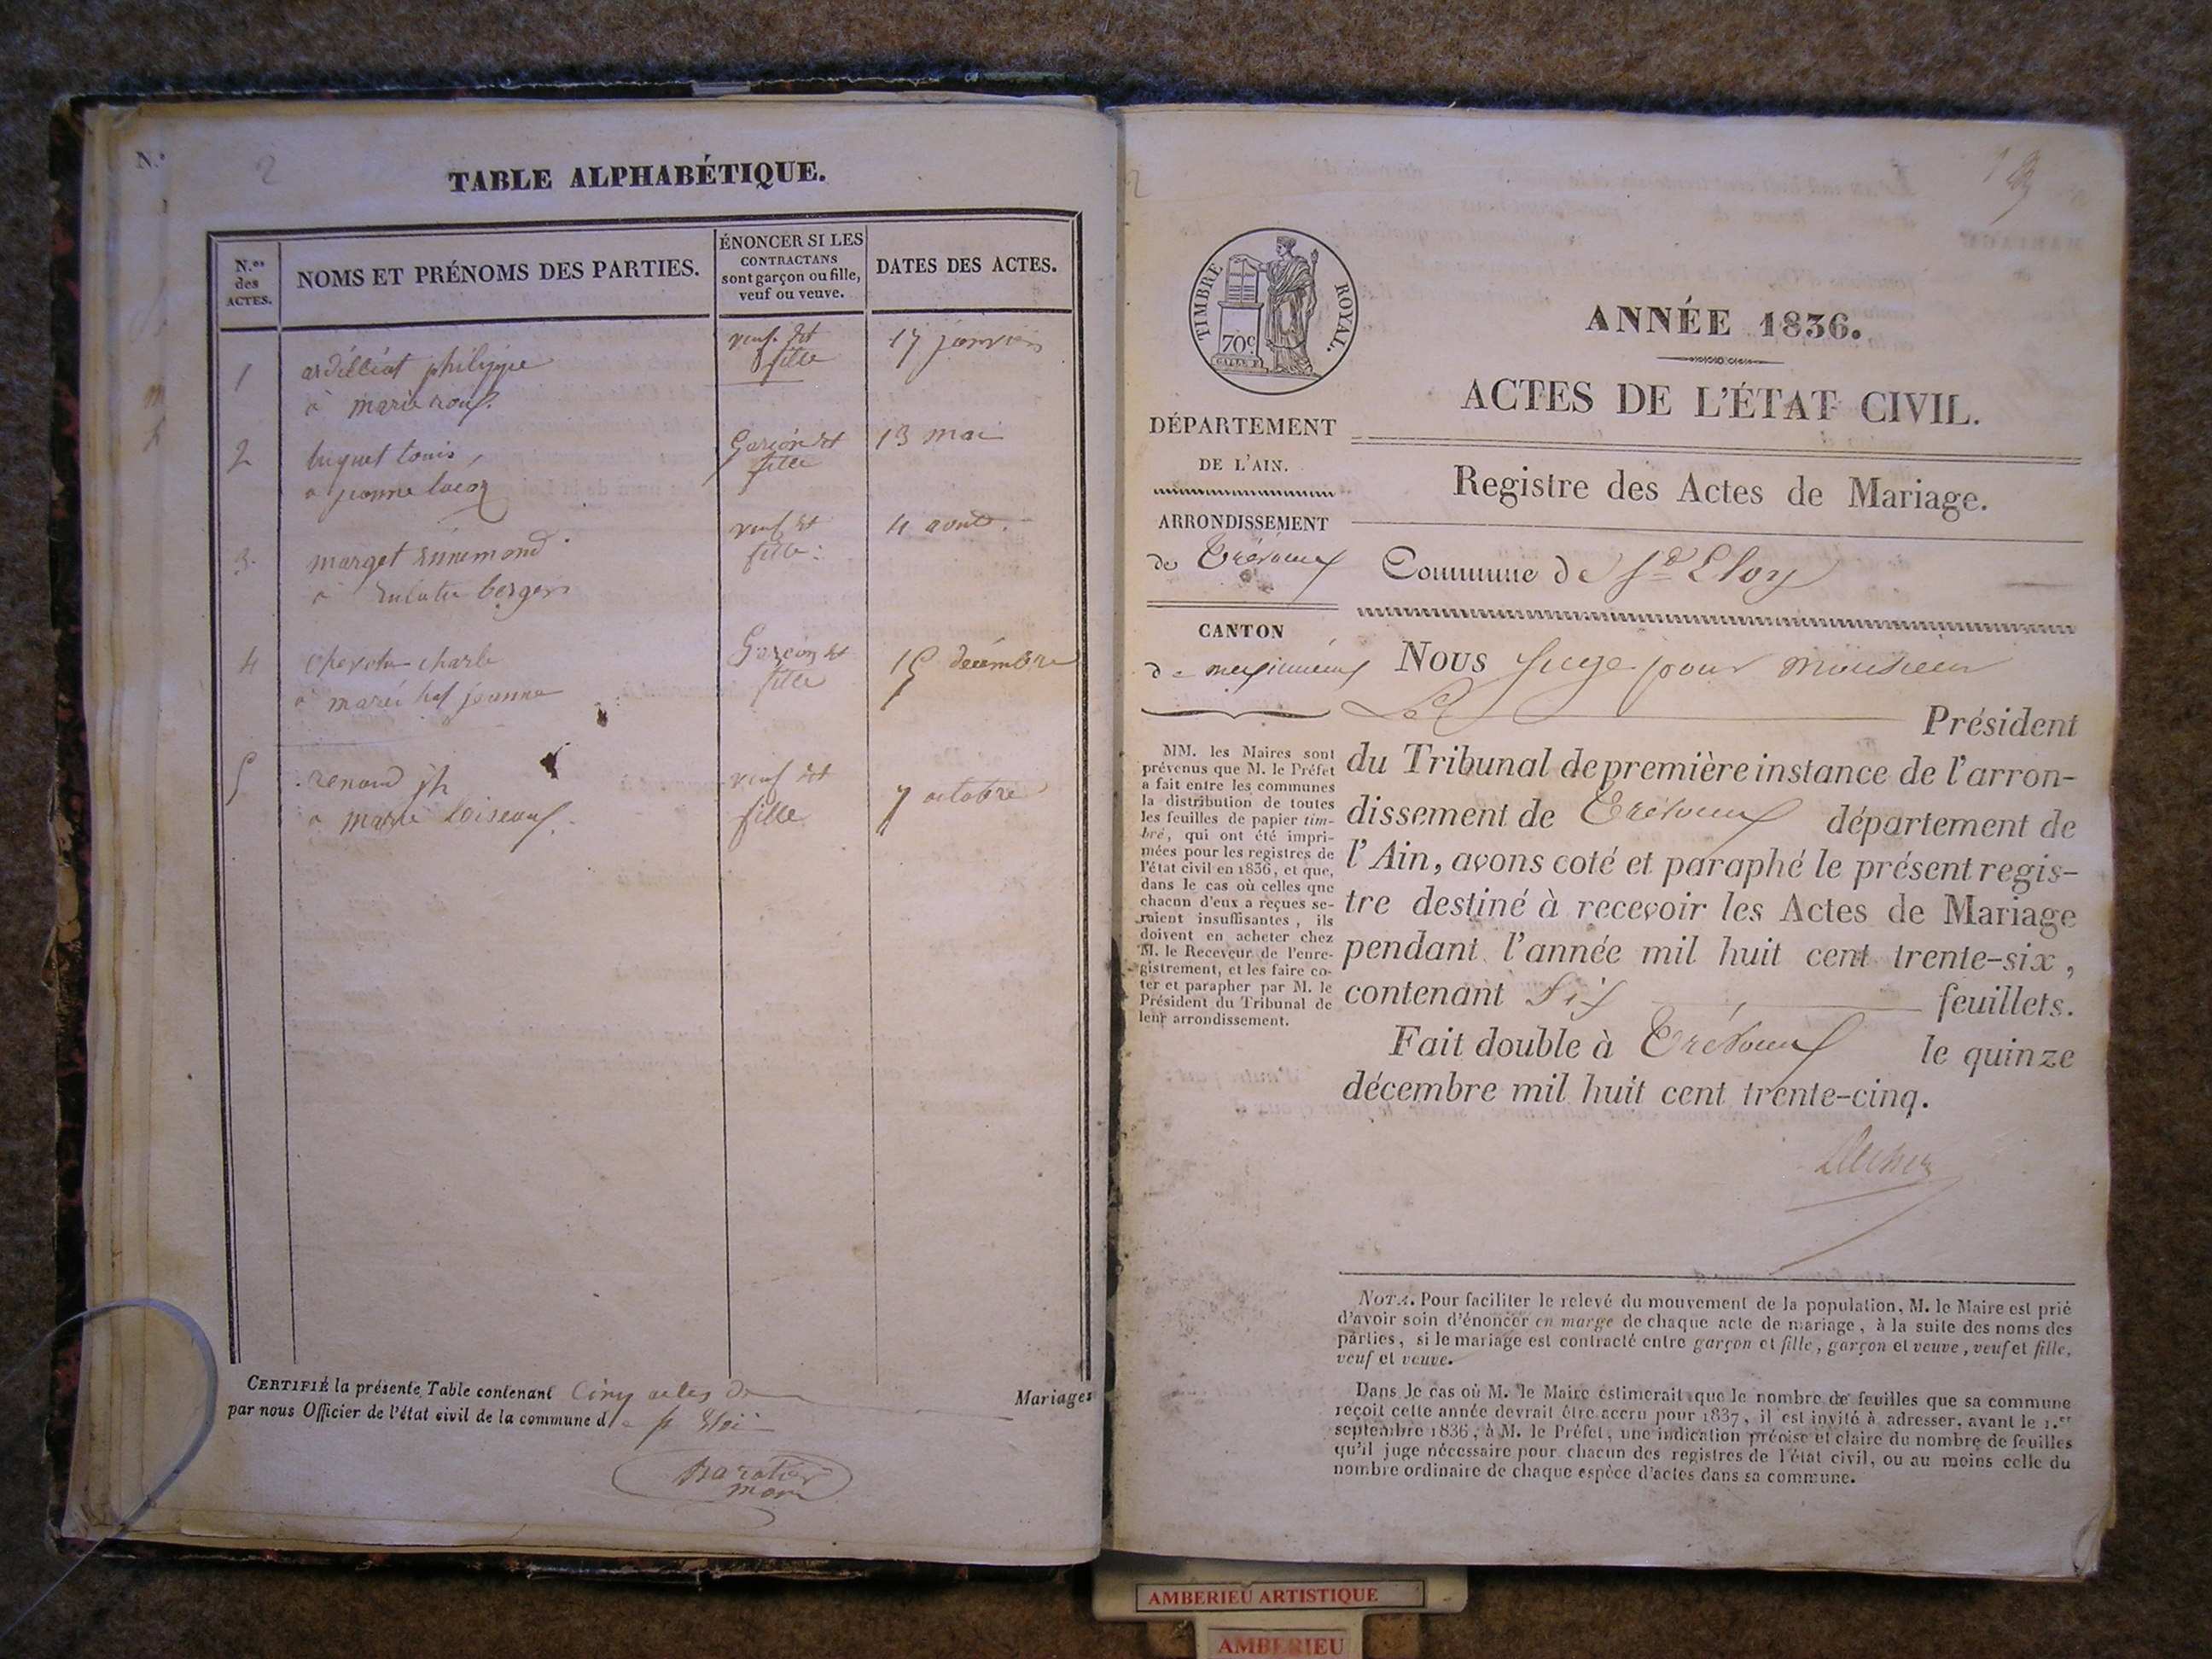 N.°
2
TABLE ALPHABÉTIQUE.
N.os des ACTES.
NOMS ET PRÉNOMS DES PARTIES.
ÉNONCER SI LES
CONTRACTANS
sont garçon ou fille,
veuf ou veuve.
DATES DES ACTES.
1 ardilliat philippe veuf et fille 17 janvier
à marie roux.
2 buquet louis, Garçon et fille 13 mai
a jeanne
3. marget Ennemond veuf et fille: 4 août.
à berger
4 charle Garçon et fille 15 décembre
à jeanne
5 renaud jh veuf et fille 7 octobre
à marie loiseaux.
CERTIFIÉ la présente Table contenant Cinq actes de Mariages
par nous Officier de l'état civil de la commune de st Eloi
maire
TIMBRE ROYAL.
70c
ANNÉE 1836.
ACTES DE L'ÉTAT CIVIL.
DÉPARTEMENT
DE L'AIN.
Registre des Actes de Mariage.
ARRONDISSEMENT
de Trévoux
Commune de St Eloy
CANTON
de meximieux
Nous Juge pour Monsieur
Le Président
du Tribunal de première instance de l'arron-
dissement de Trévoux département de
l'Ain, avons coté et paraphé le présent regis-
tre destiné à recevoir les Actes de Mariage
pendant l'année mil huit cent trente-six,
contenant Six feuillets.
Fait double à Trévoux le quinze
décembre mil huit cent trente-cinq.
MM. les Maires sont
prévenus que M. le Préfet
a fait entre les communes
la distribution de toutes
les feuilles de papier tim-
bré, qui ont été impri-
mées pour les registres de
l'état civil en 1836, et que,
dans le cas où celles que
chacun d'eux a reçues se-
raient insuffisantes, ils
doivent en acheter chez
M. le Receveur de l'enre-
gistrement, et les faire co-
ter et parapher par M. le
Président du Tribunal de
leur arrondissement.
NOTA. Pour faciliter le relevé du mouvement de la population, M. le Maire est prié
d'avoir soin d'énoncer en marge de chaque acte de mariage, à la suite des noms des
parties, si le mariage est contracté entre garçon et fille, garçon et veuve, veuf et fille,
veuf et veuve.
Dans le cas où M. le Maire estimerait que le nombre de feuilles que sa commune
reçoit cette année devrait être accru pour 1837, il est invité à adresser, avant le 1.er
septembre 1836, à M. le Préfet, une indication précise et claire du nombre de feuilles
qu'il juge nécessaire pour chacun des registres de l'état civil, ou au moins celle du
nombre ordinaire de chaque espèce d'actes dans sa commune.
AMBERIEU ARTISTIQUE
AMBERIEU